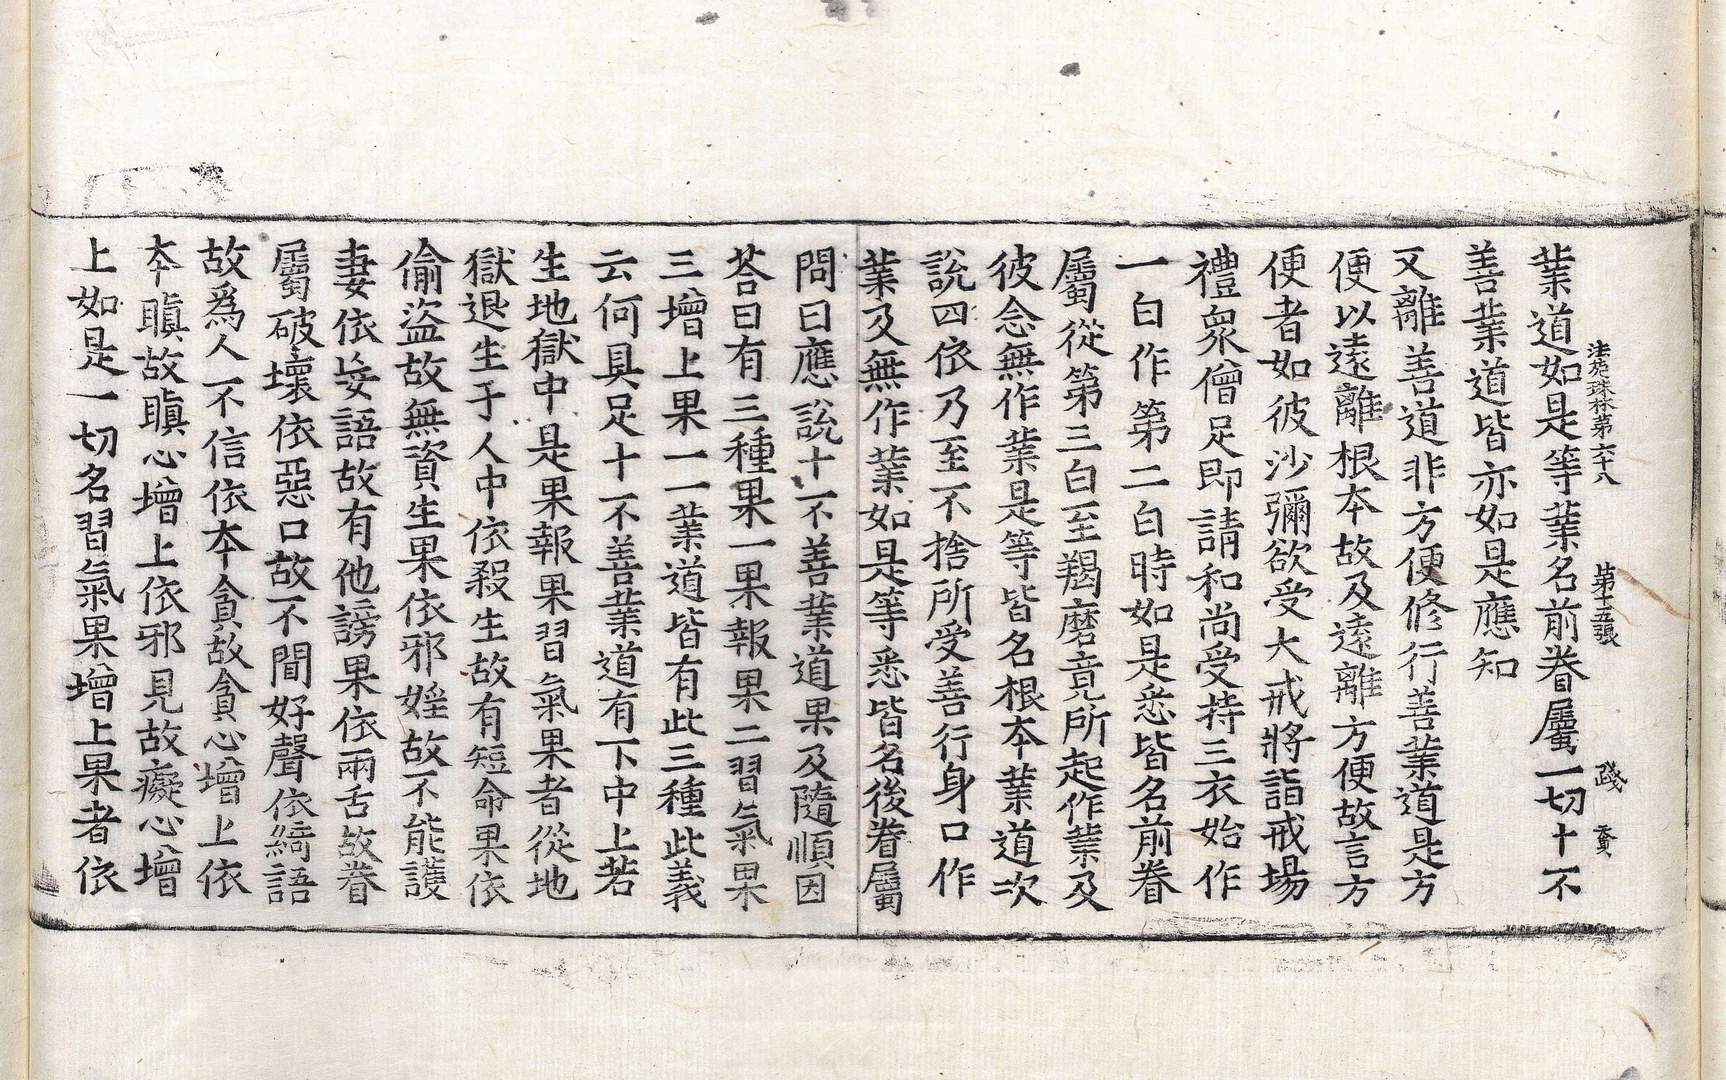 法苑珠林第六十八 第十五張 踐
業道如是等業名前眷屬一切十不
善業道皆亦如是應知
又離善道非方便修行善業道是方
便以遠離根本故及遠離方便故言方
便者如彼沙彌欲受大戒將詣戒場
禮衆僧足即請和尚受持三衣始作
一白作第二白時如是悉皆名前眷
屬從第三白至羯磨竟所起作業及
彼念無作業是等皆名根本業道次
說四依乃至不捨所受善行身口作
業及無作業如是等悉皆名後眷屬
問曰應說十不善業道果及隨順因
荅曰有三種果一果報果二習氣果
三增上果一一業道皆有此三種此義
云何具足十不善業道有下中上若
生地獄中是果報果習氣果者從地
獄退生于人中依殺生故有短命果依
偷盜故無資生果依邪婬故不能護
妻依妄語故有他謗果依兩舌故眷
屬破壞依惡口故不聞好聲依綺語
故爲人不信依本貪故貪心增上依
本瞋故瞋心增上依邪見故癡心增
上如是一切名習氣果增上果者依